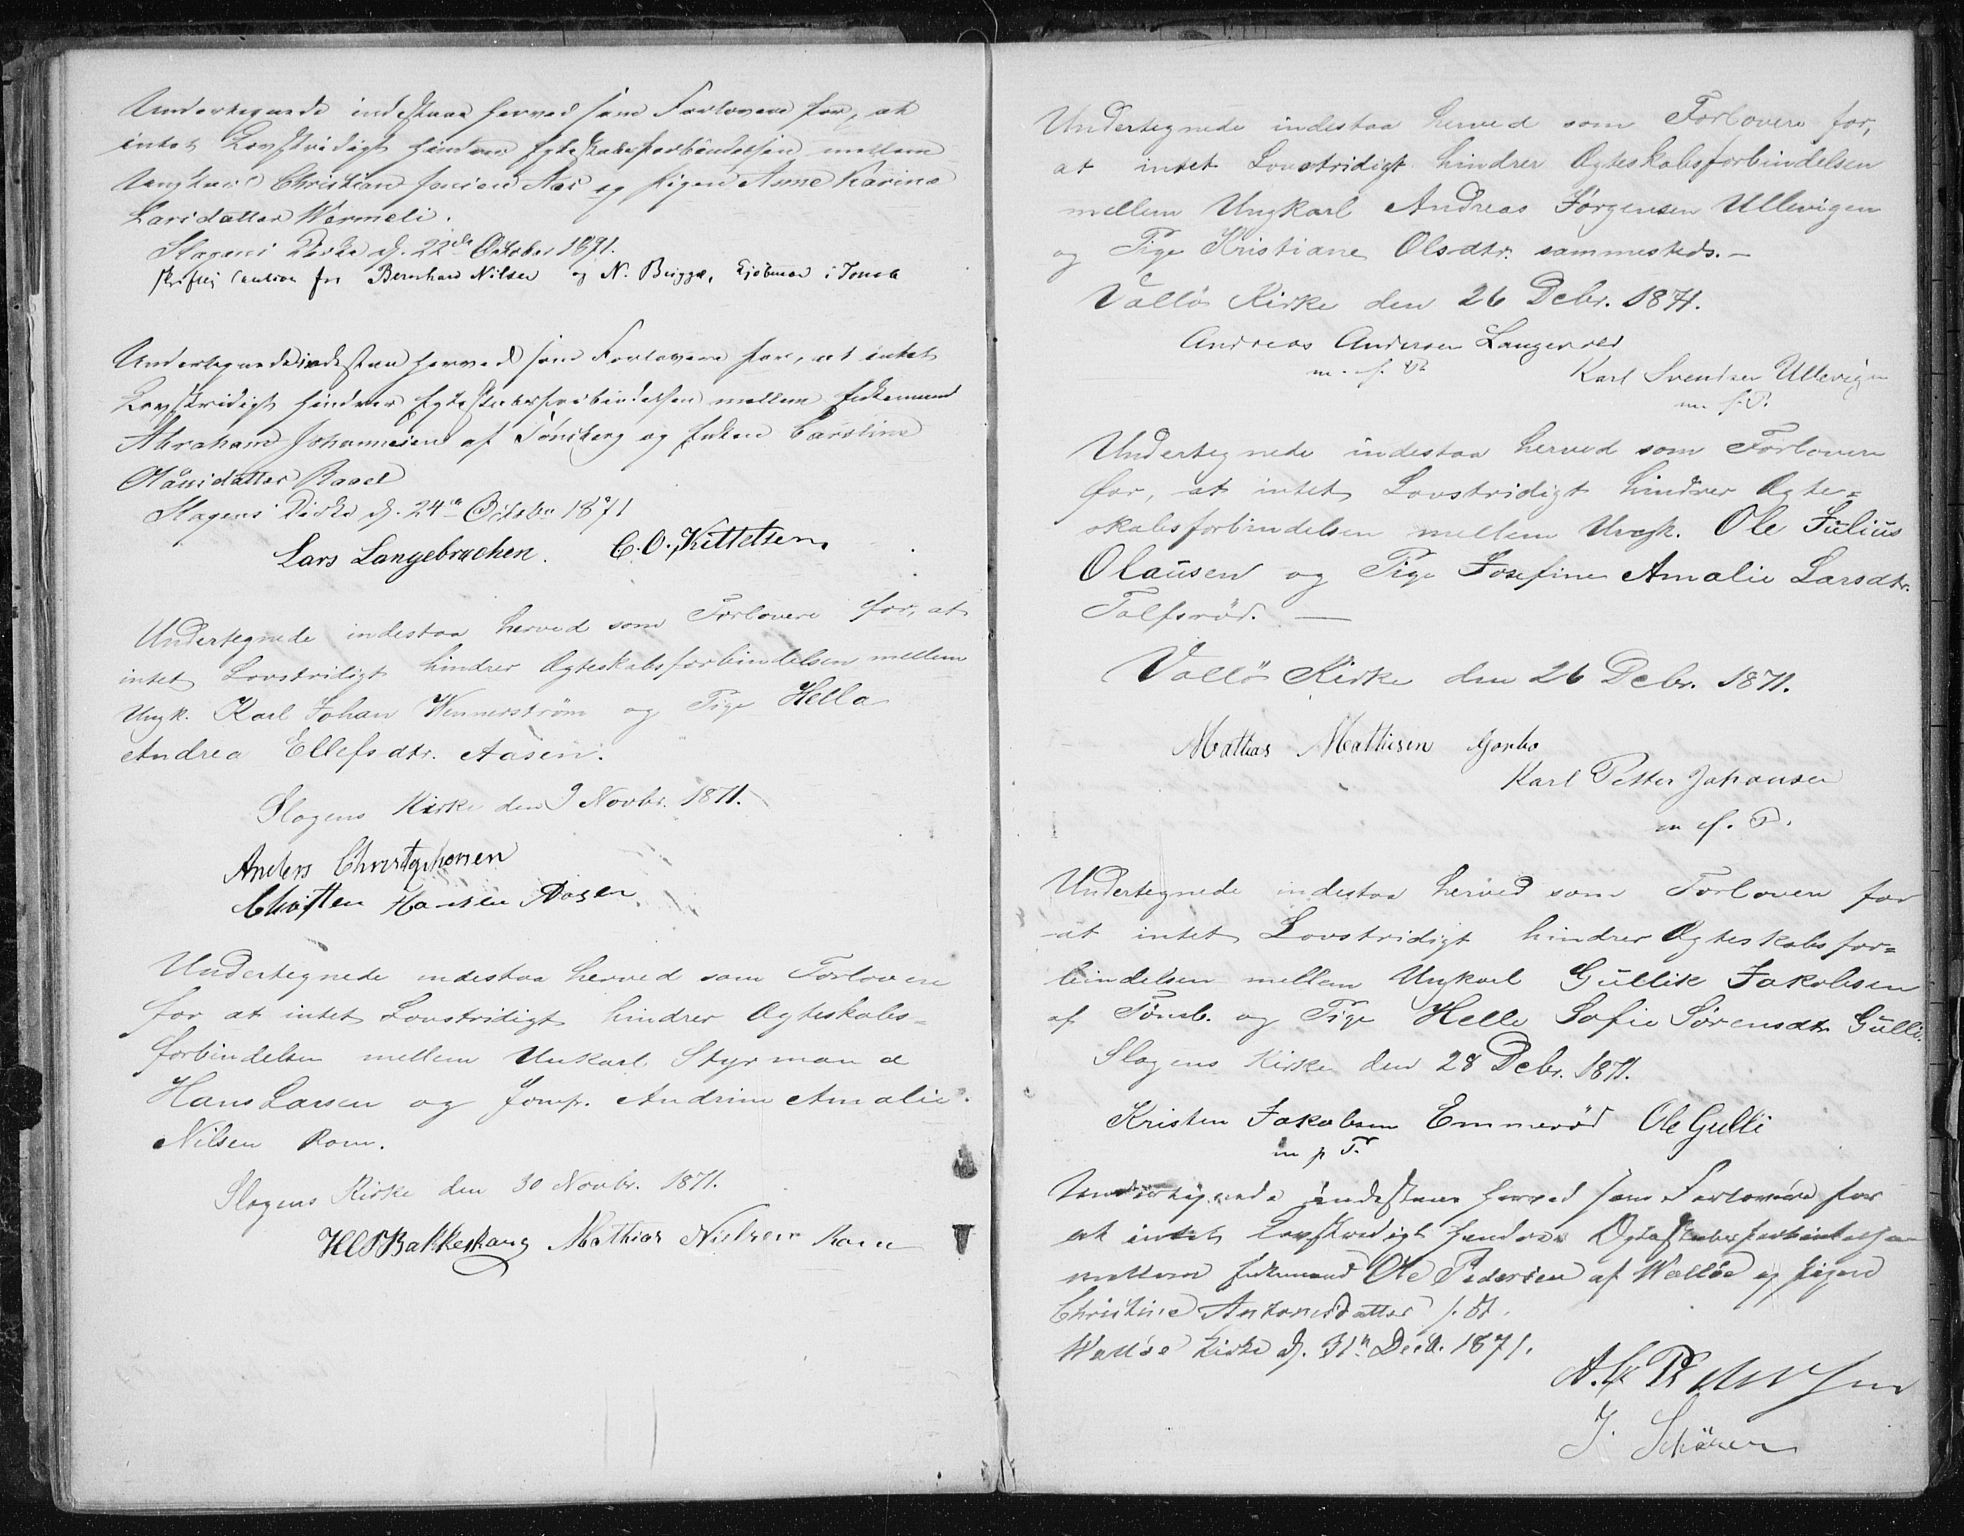 Undertegnede indestaae herved som Forlovere for, at
intet Lovstridigt hindrer Egteskabsforbindelsen mellem
Ungkarl Christian Jensen Aas og Pigen Anne Karine
Larsdatter Wermeli.
Slagens Kirke d. 22de October 1871.
skriftlig Caution fra Bernhard Nilsen og N. Brigge, Kjøbmænd i Tønsb
Undertegnede indestaae herved som Forlovere for, at intet
Lovstridigt hindrer Egteskabsforbindelsen mellem Enkemand
Abraham Johannesen af Tønsberg og Enken Caroline
Olausdatter Raael
Slagens Kirke d. 24de October 1871
Lars Langebrachen. C. O. Kittelsen.
Undertegnede indestaa herved som Forlovere for, at
intet Lovstridigt hindrer Ægteskabsforbindelsen mellem
Ungk. Karl Johan Wennerström og Pige Hella
Andrea Ellefsdtr. Aasen.
Slagens Kirke den 9 Novbr. 1871.
Anders Christophersen
Christen Hansen Aasen
Undertegnede indestaa herved som Forlovere
for at intet Lovstridigt hindrer Ægteskabs=
forbindelsen mellem Unkarl Styrmand
Hans Larsen og Jomf. Andrine Amalie
Nilsen Rom.
Slagens Kirke den 30 Novbr. 1871.
Bakkeskaug Mathias Nielsen Rom
Undertegnede indestaa herved som Forlovere for,
at intet Lovstridigt hindrer Ægteskabsforbindelsen
mellem Ungkarl Andreas Jørgensen Ullevigen
og Pige Kristiane Olsdtr. sammesteds. –
Vallö Kirke den 26 Debr. 1871.
Andreas Andersen Langered
m. f. P.
Karl Svendsen Ullevigen
m. f. P.
Undertegnede indestaa herved som Forlovere
for, at intet Lovstridigt hindrer Ægte=
skabsforbindelsen mellem Ungk. Ole Julius
Olausen og Pige Josefine Amalie Larsdtr.
Tolfsröd. —
Vallö Kirke den 26 Debr. 1871.
Mathias Mathisen Gorbo
Karl Petter Johansen
m. f. P.
Undertegnede indestaa herved som Forlovere for
at intet Lovstridigt hindrer Ægteskabsfor=
bindelsen mellem Ungkarl Gullik Jakobsen
af Tönsb. og Pige Helle Sofie Sörensdtr. Gulli.
Slagens Kirke den 28 Debr. 1871.
Kristen Jakobsen Emmeröd Ole Gulli
m p P.
Undertegnede indestaae herved som Forlovere for
at intet Lovstridigt hindrer Ægteskabsforbindelsen
mellem Enkemand Ole Pedersen af Walløe og Pigen
Christine Antonsdatter s. St.
Walløe Kirke d. 31te Decb. 1871.
Pedersen
J. Schöuen